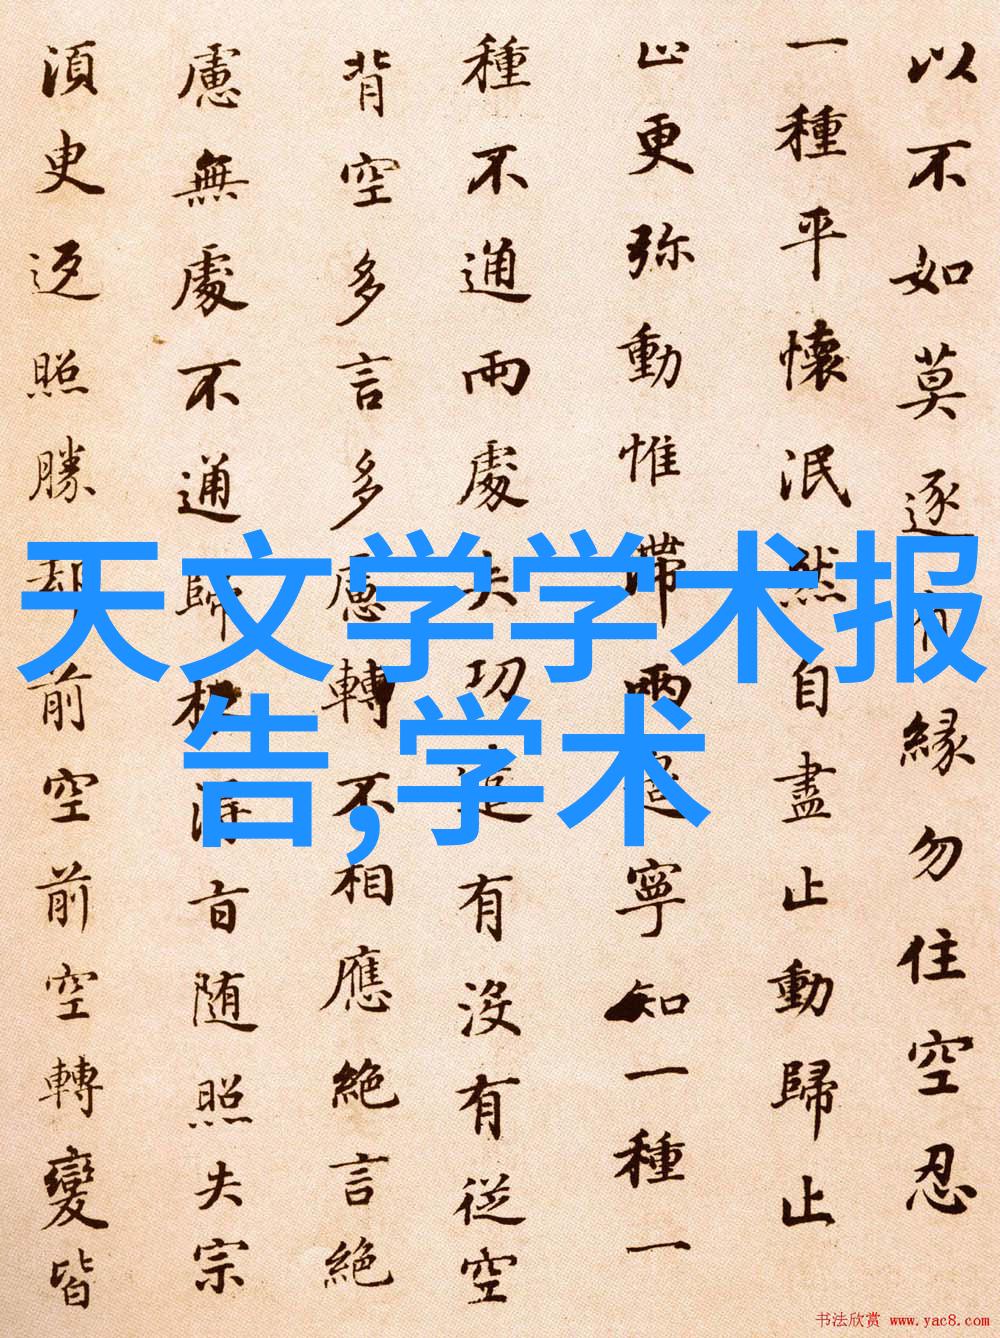 以不如莫逐有緣勿住空忍
一種平懷泯然自盡止動歸止
止更弥動惟滯兩邊寧知一種一
種不通兩處失功遣有沒有従空
背空多言多慮轉不相應絶言絶
慮無處不通歸根得旨随照失宗
須臾返照勝却前空前空轉變皆
天文学学术报
告,学术
书法欣赏 www.yac8.com